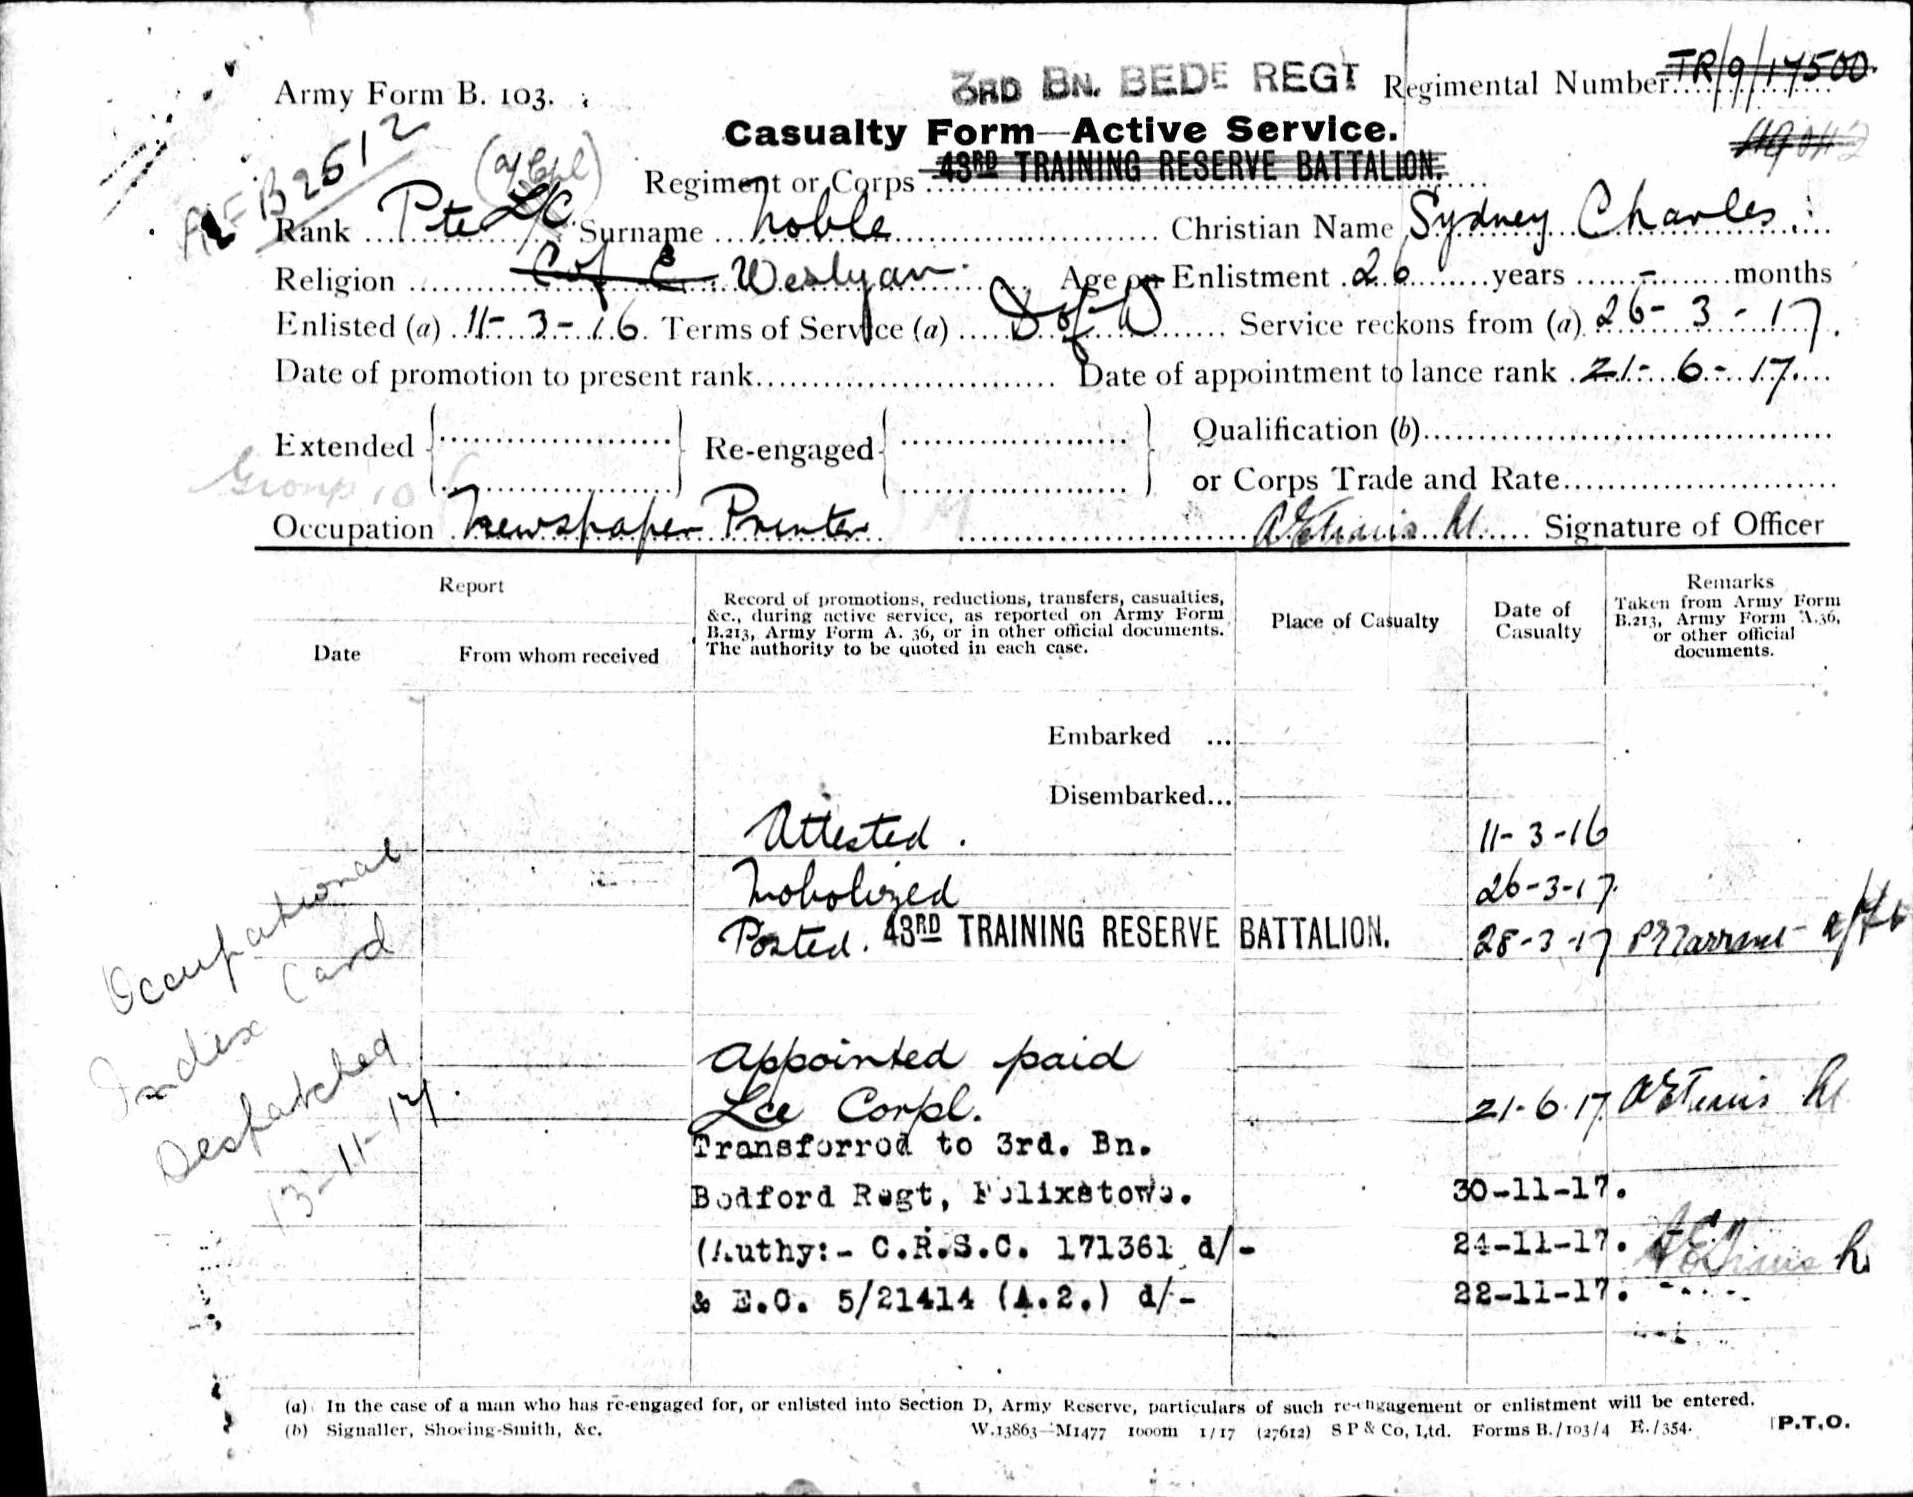 3RD BN. BEDF REGT Regimental Number TR/9/17500.
Army Form B. 103.
Casualty Form—Active Service.
AF B2512
(a/Cpl)
Regiment or Corps 43RD TRAINING RESERVE BATTALION.
Rank Pte L/C. Surname Noble Christian Name Sydney Charles.
Religion C of E Weslyan. Age on Enlistment 26 years - months
Enlisted (a) 11-3-16. Terms of Service (a) D of W Service reckons from (a) 26-3-17.
Date of promotion to present rank Date of appointment to lance rank 21-6-17.
Extended Re-engaged Qualification (b)
Group 10
or Corps Trade and Rate
Occupation Newspaper Printer Signature of Officer
Report
Date
From whom received
Record of promotions, reductions, transfers, casualties,
&c., during active service, as reported on Army Form
B.213, Army Form A. 36, or in other official documents.
The authority to be quoted in each case.
Place of Casualty
Date of
Casualty
Remarks
Taken from Army Form
B.213, Army Form A.36,
or other official
documents.
Embarked ...
Disembarked...
Attested. 11-3-16
Mobolized 26-3-17.
Posted. 43RD TRAINING RESERVE BATTALION. 28-3-17
Appointed paid
Lce Corpl. 21-6-17
Transferred to 3rd. Bn.
Bedford Regt, Felixstowe. 30-11-17.
(Authy:- C.R.S.C. 171361 d/- 24-11-17.
& E.O. 5/21414 (A.2.) d/- 22-11-17.
Occupational
Index Card
Despatched
13-11-17.
(a) In the case of a man who has re-engaged for, or enlisted into Section D, Army Reserve, particulars of such re-engagement or enlistment will be entered.
(b) Signaller, Shoeing-Smith, &c. W.13863—M1477 1000m 1/17 (27612) S P & Co, Ltd. Forms B./103/4 E./354. P.T.O.